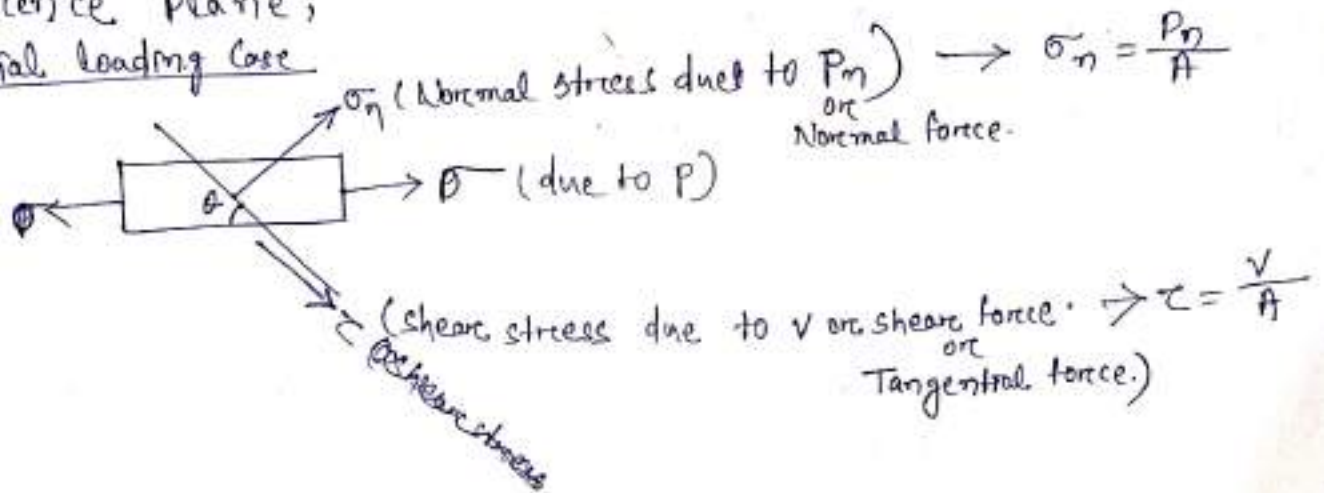 Plane,
Loading Case
σn (Normal stress due to Pn) → σn = Pn/A
or
Normal force.
σ (due to P)
θ
τ (shear stress due to V or shear force. → τ = V/A
or
Tangential force.)